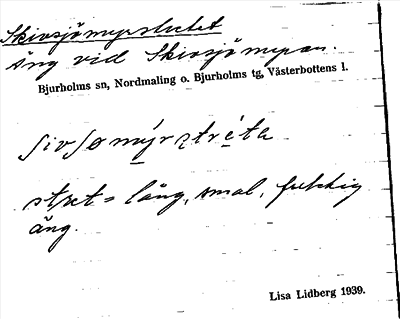 Skivsjömyrslutet
äng vid Skivsjömyran.
Bjurholms sn, Nordmaling o. Bjurholms tg, Västerbottens l.
ʃivʃømýrstréta
stret = lång, smal, fuktig
äng.
Lisa Lidberg 1939.